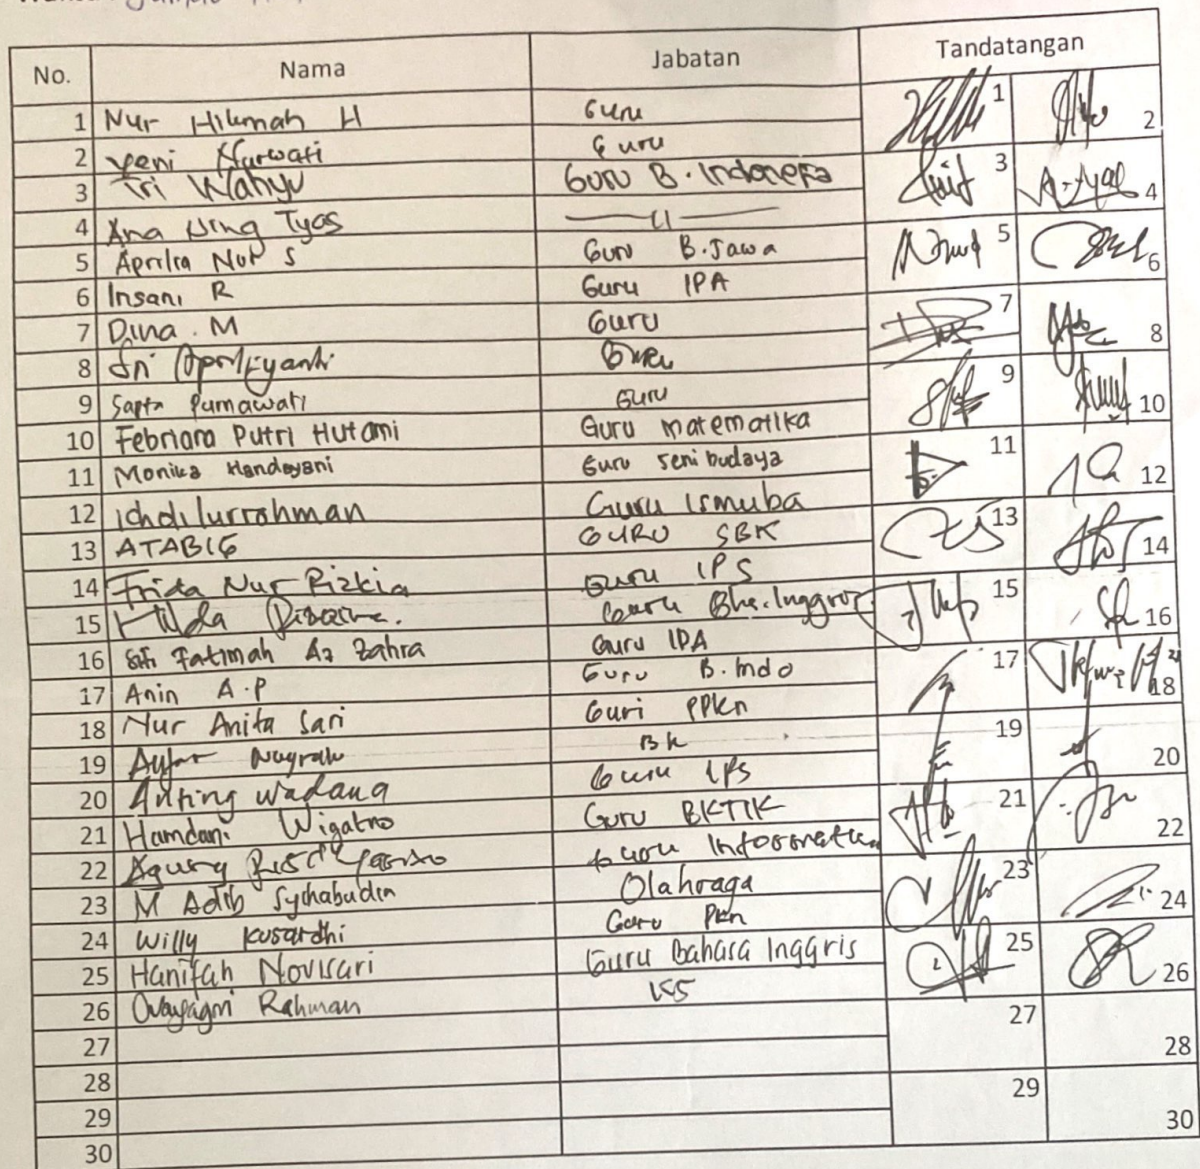 No. Nama Jabatan Tandatangan
1 Nur Hikmah H Guru 1 2
2 Yeni Nurwati Guru
3 Tri Wahyu Guru B. Indonesia 3 4
4 Ana Ning Tyas —— 〃 ——
5 Aprilia Nur S Guru B. Jawa 5 6
6 Insani R Guru IPA
7 Dina . M Guru 7 8
8 Sri Apriliyanti Guru
9 Sapta Purnawati Guru 9 10
10 Febriara Putri Hutami Guru Matematika
11 Monika Handayani Guru seni budaya 11 12
12 ichdilurrohman Guru Ismuba
13 ATABIG GURU SBK 13 14
14 Frida Nur Rizkia Guru IPS
15 Hilda Guru Bhs. Inggris 15 16
16 Siti Fatimah Az Zahra Guru IPA
17 Anin A.P Guru B. Indo 17 18
18 Nur Anita Sari Guri PPKn
19 BK 19 20
20 Anting Wadana Guru IPS
21 Hamdani Wigatno Guru BKTIK 21 22
22 Agung Guru Informatika
23 M Adib Syihabudin Olahraga 23 24
24 Willy Kusardhi Guru PKn
25 Hanifah Novisari Guru Bahasa Inggris 25 26
26 Rahman
27 27 28
28
29 29 30
30